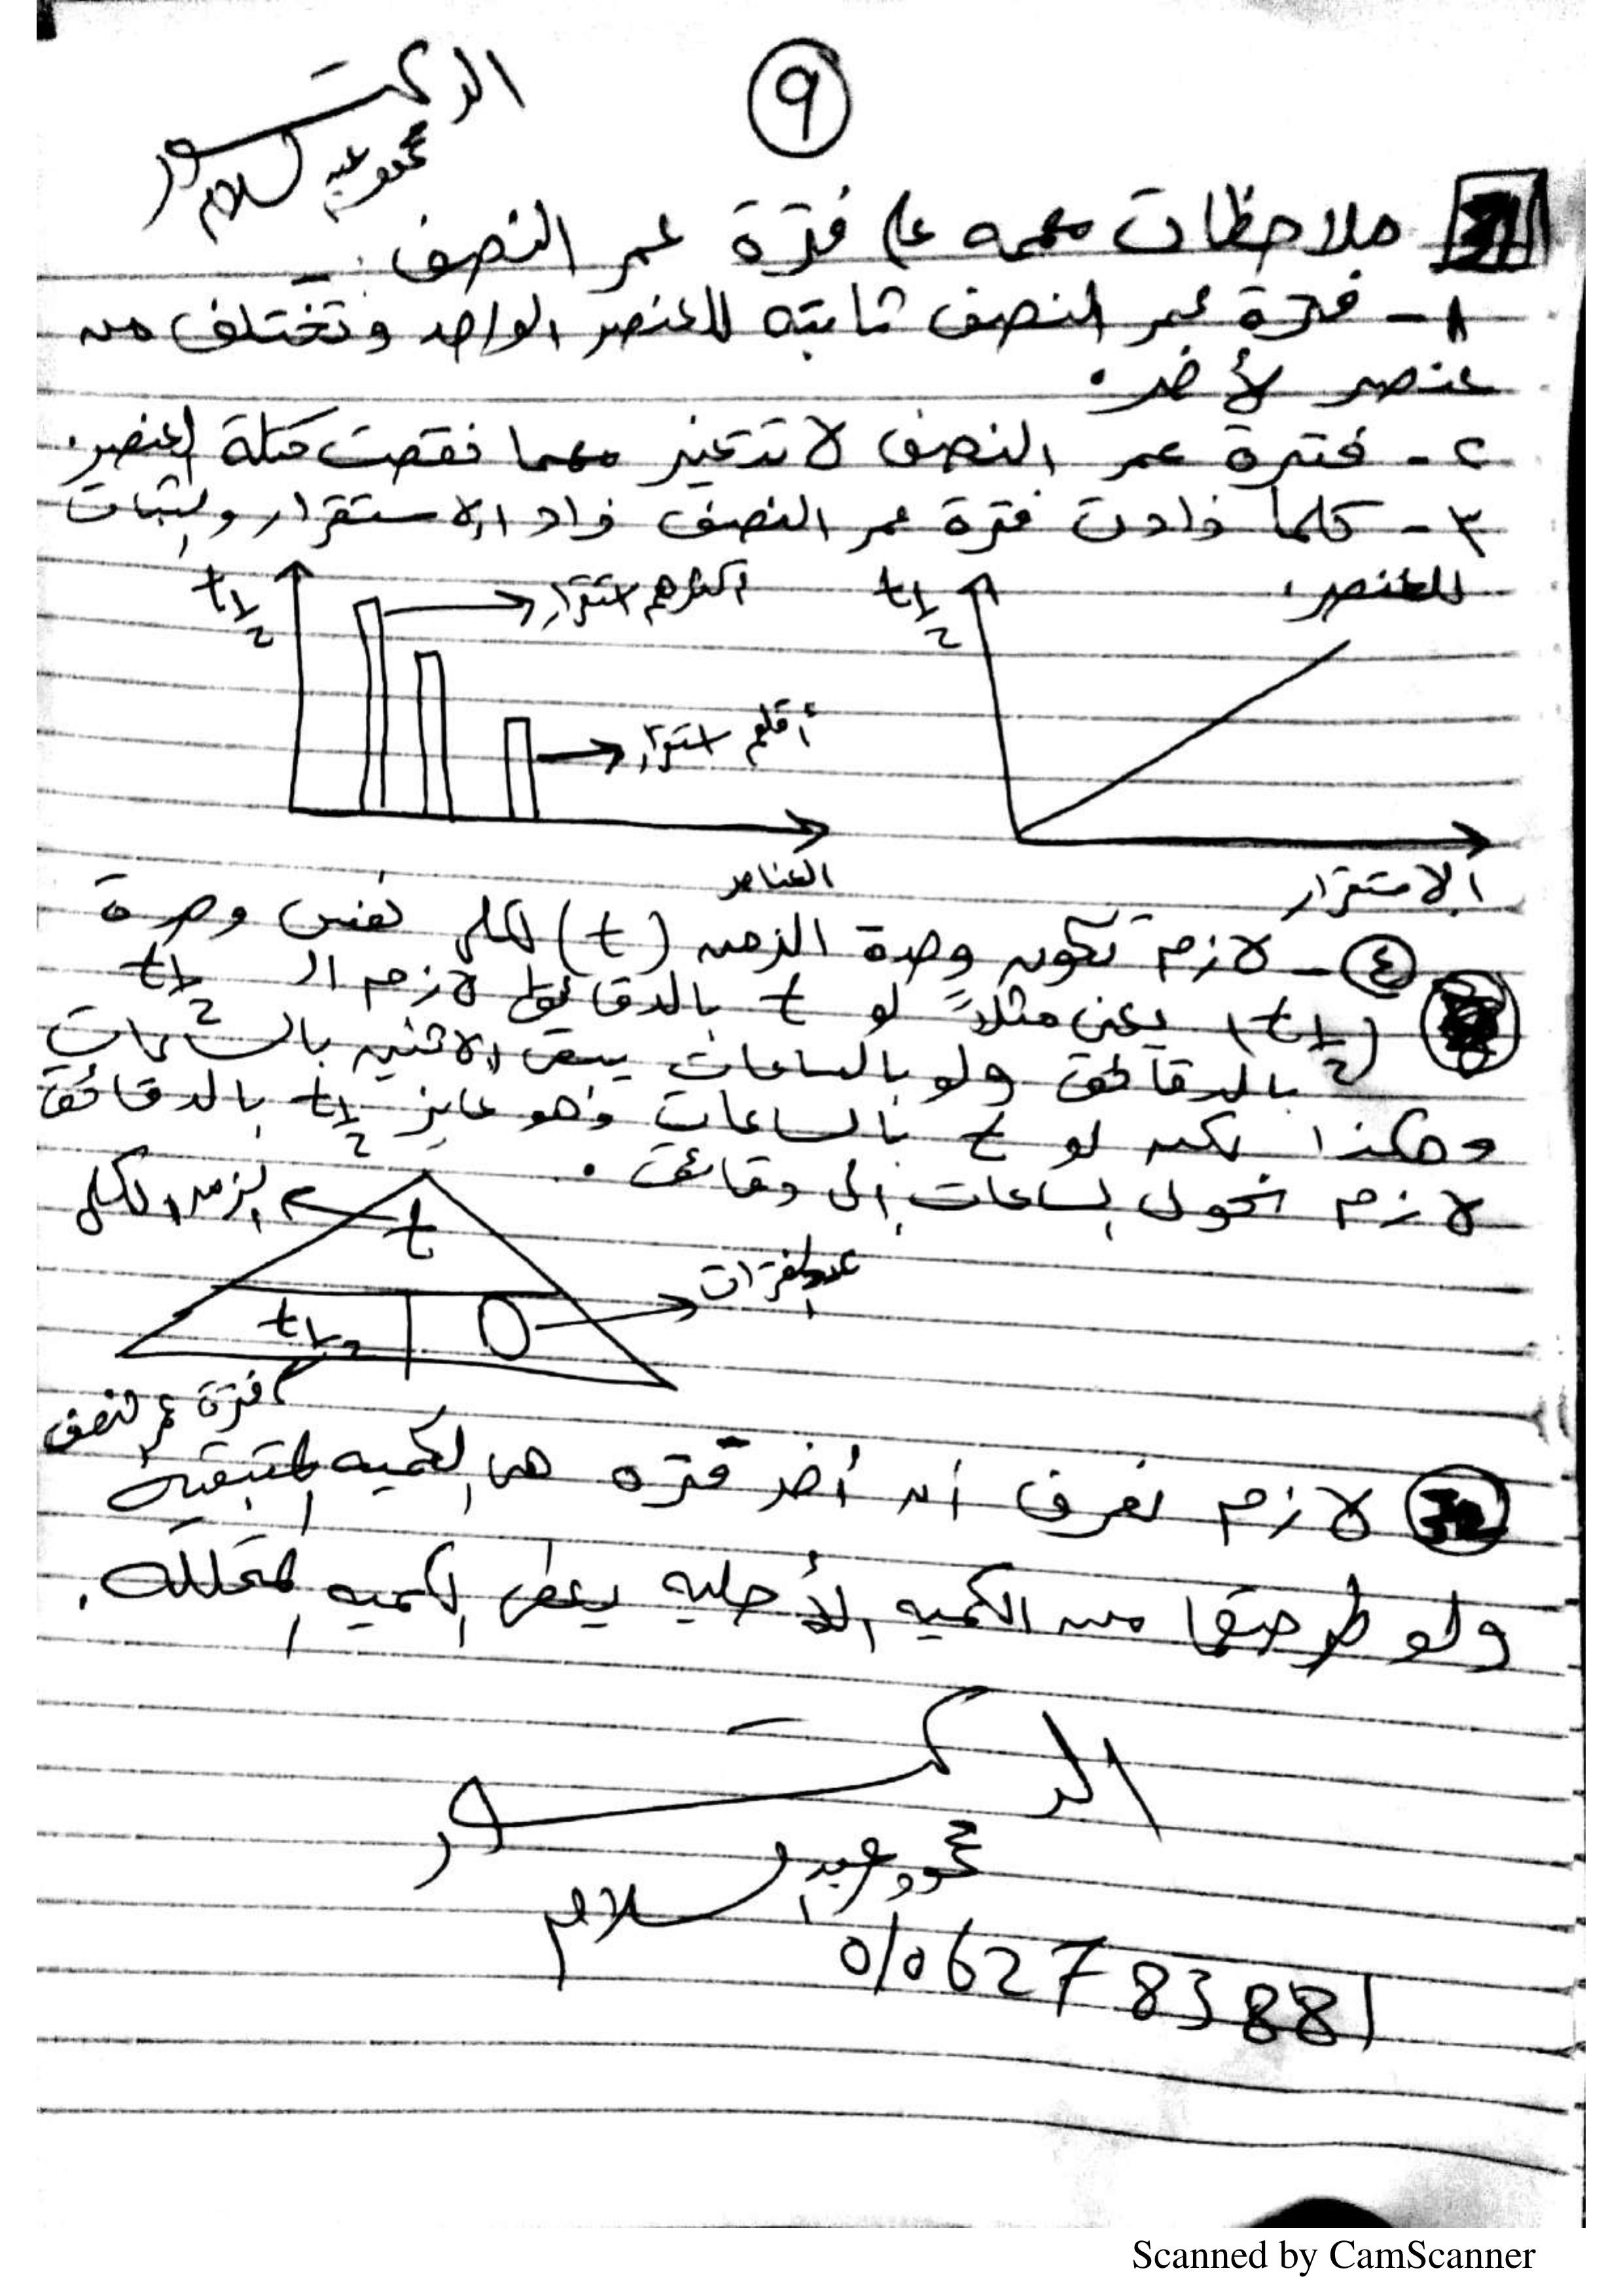 ٩
الدكتور
محمود عبد السلام
ملاحظات مهمه على فترة عمر النصف :-
١- فترة عمر النصف ثابته للعنصر الواحد وتختلف من
عنصر لأخر.
٢- فترة عمر النصف لا تتغير مهما نقصت كتلة العنصر.
٣- كلما زادت فترة عمر النصف زاد الاستقرار والثبات
للعنصر.
t½
الاستقرار
t½
أكثرهم استقرار
أقلهم استقرار
العناصر
٤- لازم تكون وحدة الزمن (t) الكلى نفس وحدة
(t½) يعنى مثلاً لو t بالدقائق لازم الـ t½
بالدقائق ولو بالساعات يبقى الاثنين بالساعات
وهكذا لكن لو t بالساعات وهو عايز t½ بالدقائق
لازم نحول الساعات إلى دقائق.
t
الزمن الكلى
t½
D
عدد الفترات
فترة عمر النصف
لازم نعرف أن أخر فتره هى الكميه المتبقيه
ولو طرحتها من الكميه الأصليه يعطى الكميه المتحلله.
الدكتور
محمود عبد السلام
01062783881
Scanned by CamScanner